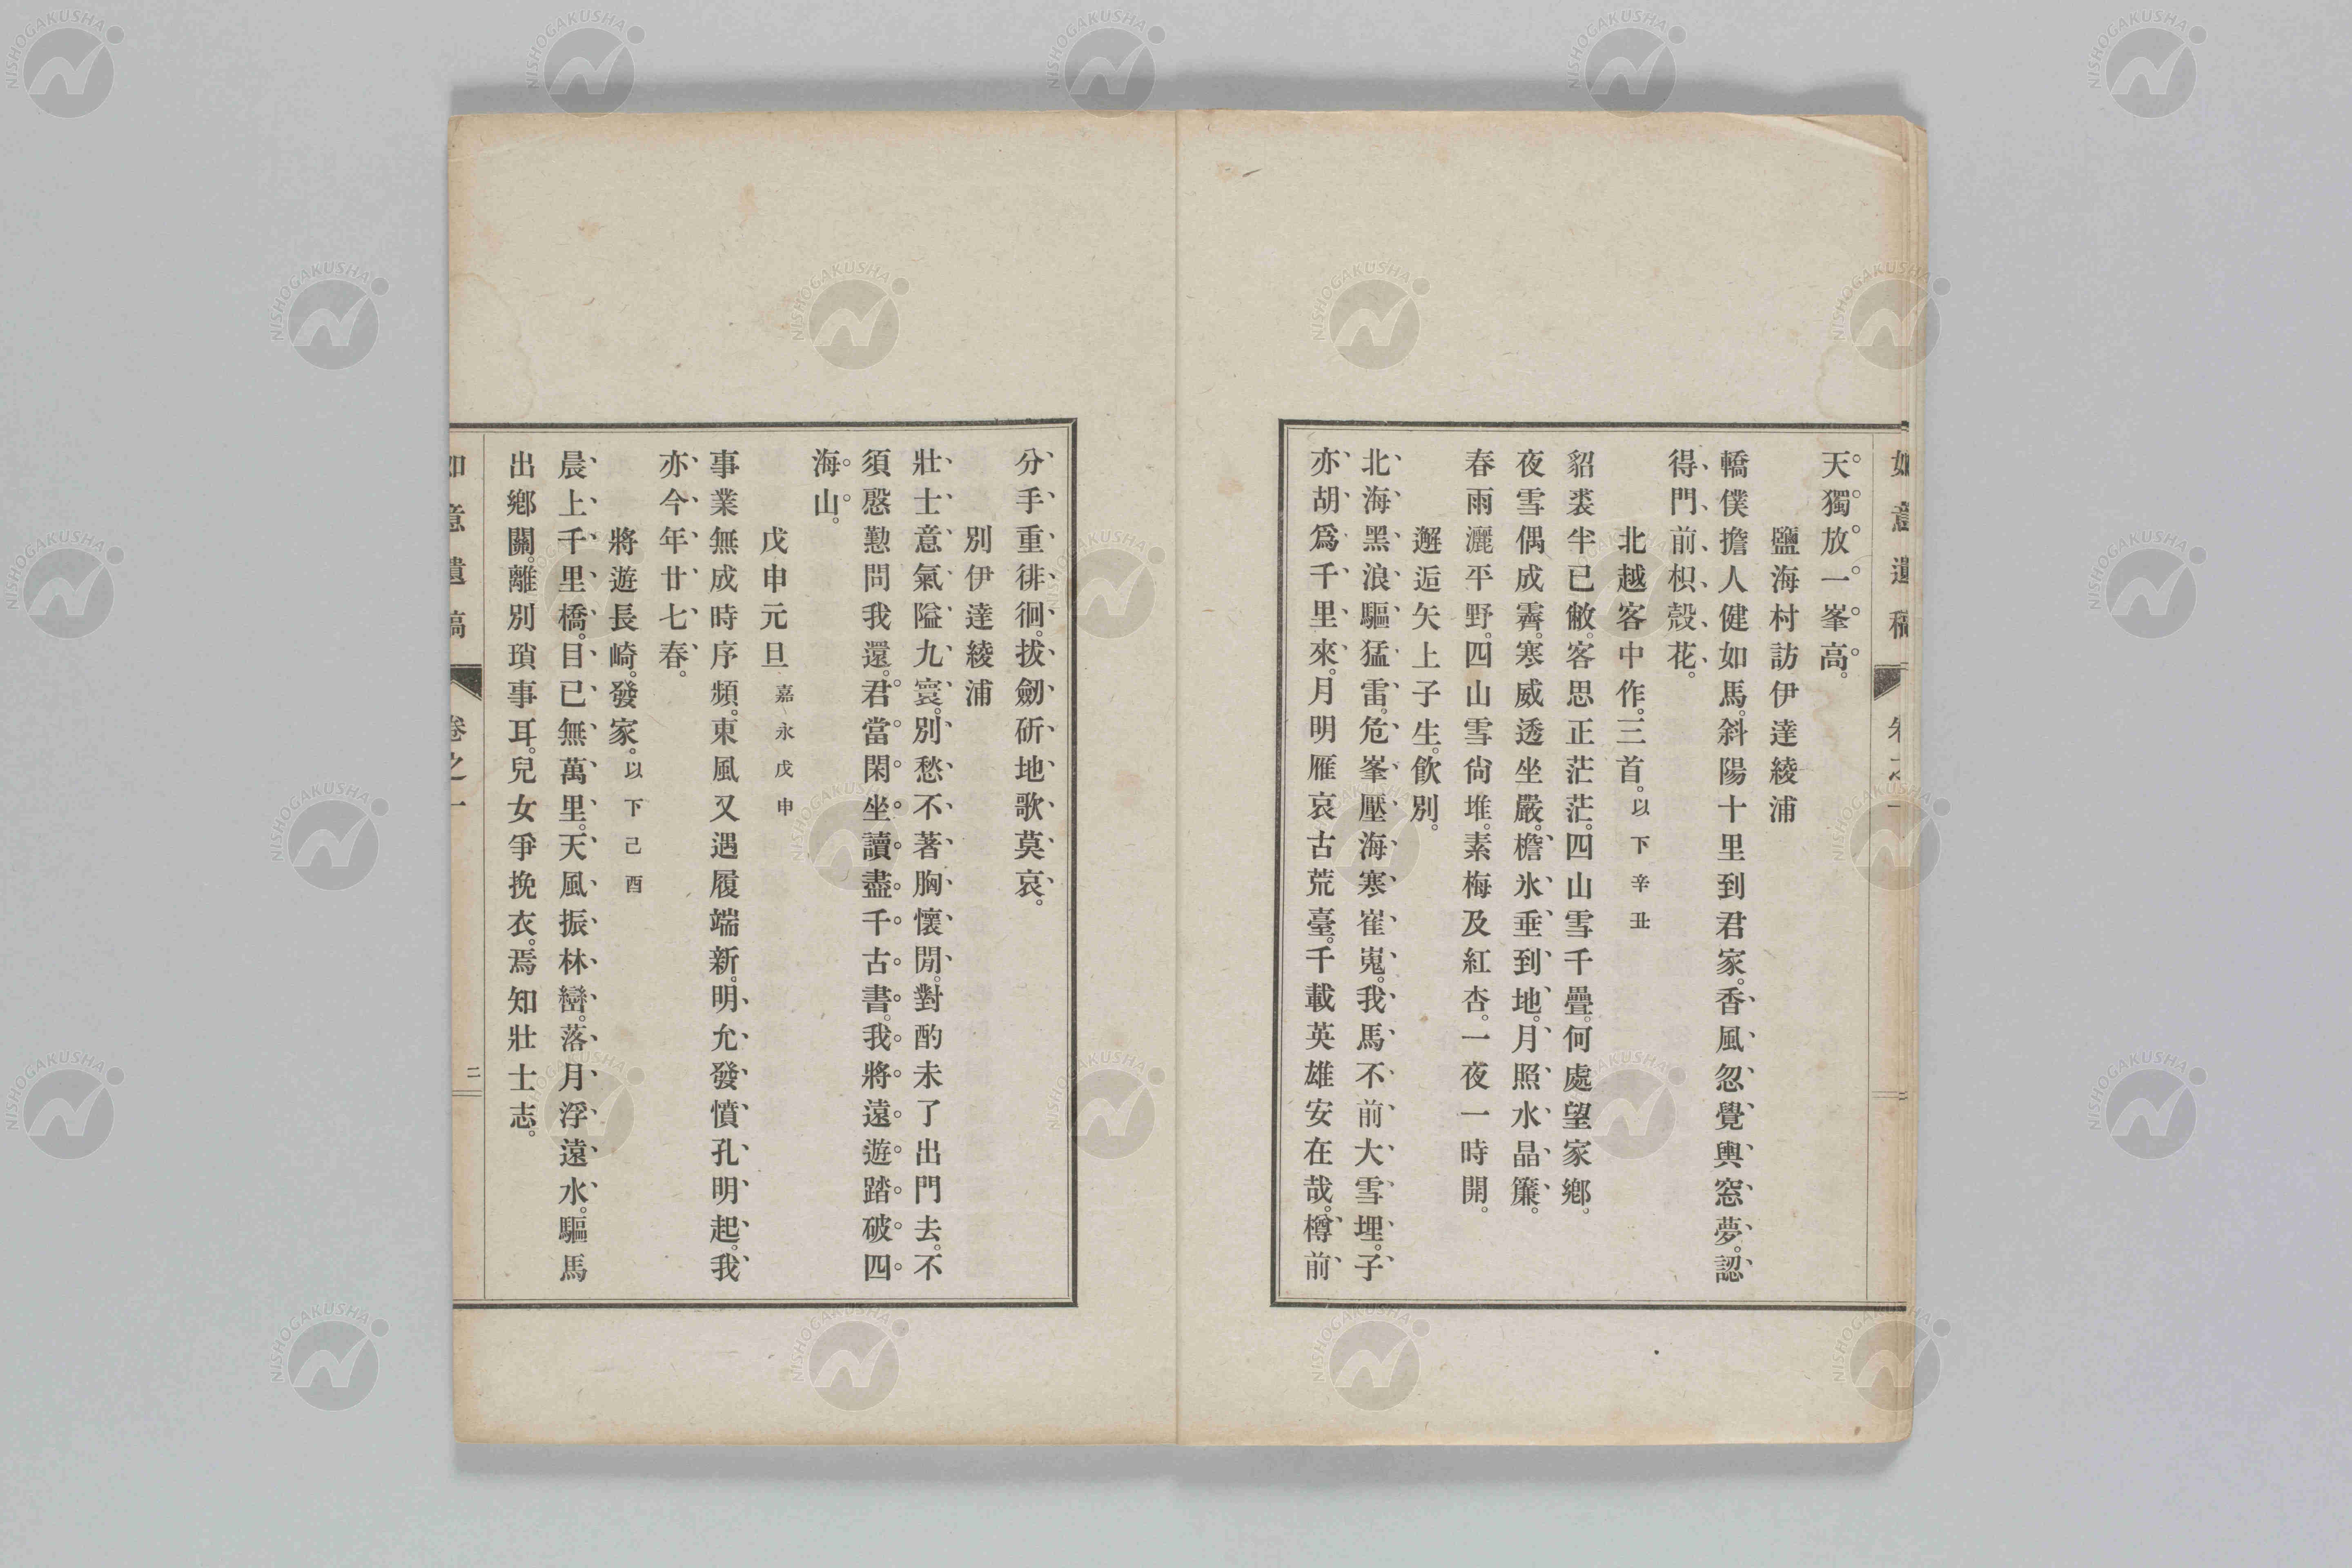 如意遺稿 卷之一 二
天獨放一峯高。
鹽海村訪伊達綾浦
轎僕擔人健如馬。斜陽十里到君家。香風忽覺輿窓夢。認
得門前枳殼花。
北越客中作。三首。以下辛丑
貂裘半已敝。客思正茫茫。四山雪千疊。何處望家鄉。
夜雪偶成霽。寒威透坐嚴。檐氷垂到地。月照水晶簾。
春雨灑平野。四山雪尙堆。素梅及紅杏。一夜一時開。
邂逅矢上子生。飮別。
北海黑浪驅猛雷。危峯壓海寒崔嵬。我馬不前大雪埋。子
亦胡爲千里來。月明雁哀古荒臺。千載英雄安在哉。樽前
分手重徘徊。拔劒斫地歌莫哀。
別伊達綾浦
壯士意氣隘九寰。別愁不著胸懷閒。對酌未了出門去。不
須慇懃問我還。君當閑坐讀盡千古書。我將遠遊踏破四
海山。
戊申元旦 嘉永戊申
事業無成時序頻。東風又遇履端新。明允發憤孔明起。我
亦今年廿七春。
將遊長崎。發家。以下己酉
晨上千里橋。目已無萬里。天風振林巒。落月浮遠水。驅馬
出鄉關。離別瑣事耳。兒女爭挽衣。焉知壯士志。
如意遺稿 卷之一 二
NISHOGAKUSHA